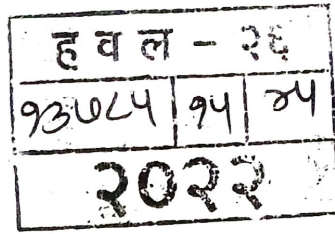 ह व ल - २६
१३७८५ | १५ | ४५
२०२२